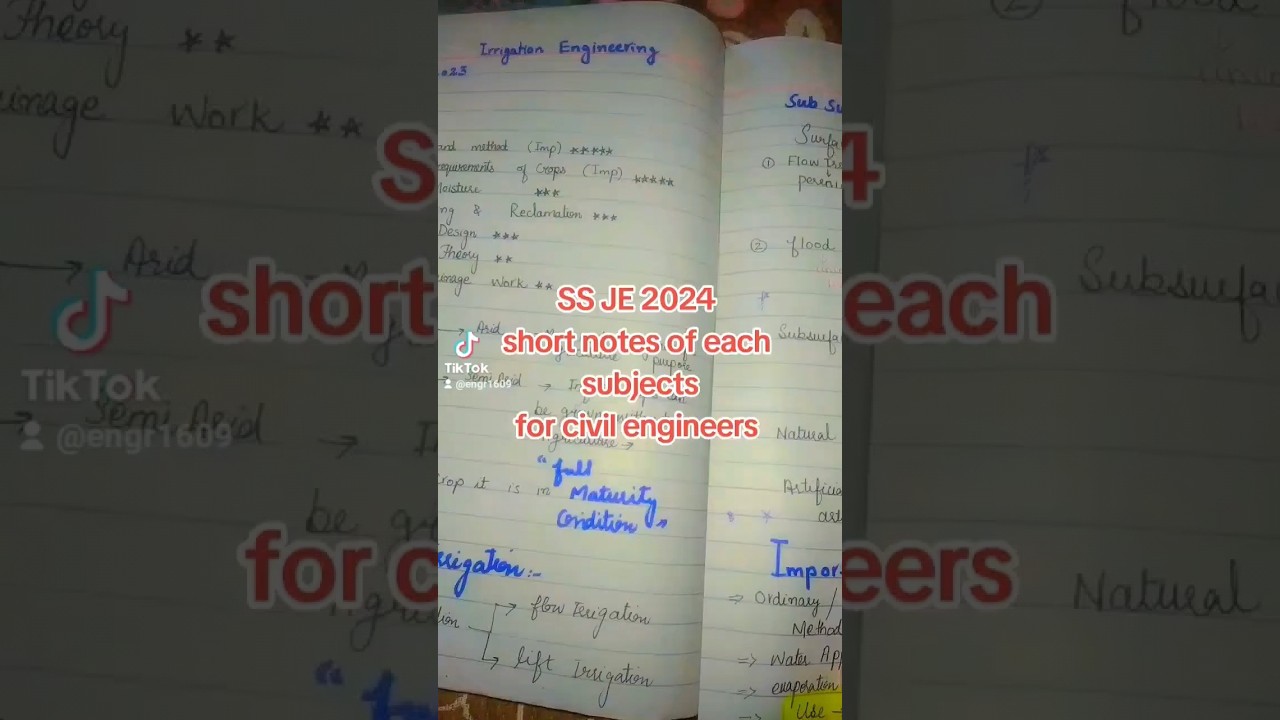 Irrigation Engineering
2023
and method (Imp) *****
equirements of Crops (Imp) *****
Moisture ***
ng & Reclamation ***
Design ***
Theory **
ainage Work **
→ Arid
→ Semi Arid →
be
"full
Maturity
Condition"
crop it is in
rrigation:-
flow Irrigation
lift Irrigation
Sub Su
Surfa
① Flow Irr
peren
② flood
Subsurfa
Natural
Artificia
Impor
⇒ Ordinary /
Method
⇒ Water App
⇒ evaporation
Use
SS JE 2024
short notes of each
subjects
for civil engineers
TikTok
@engr1609
Theory **
ainage Work **
Arid
Semi Arid →
be
short
for c
TikTok
@engr1609
flood
Subsurfa
each
Natural
eers